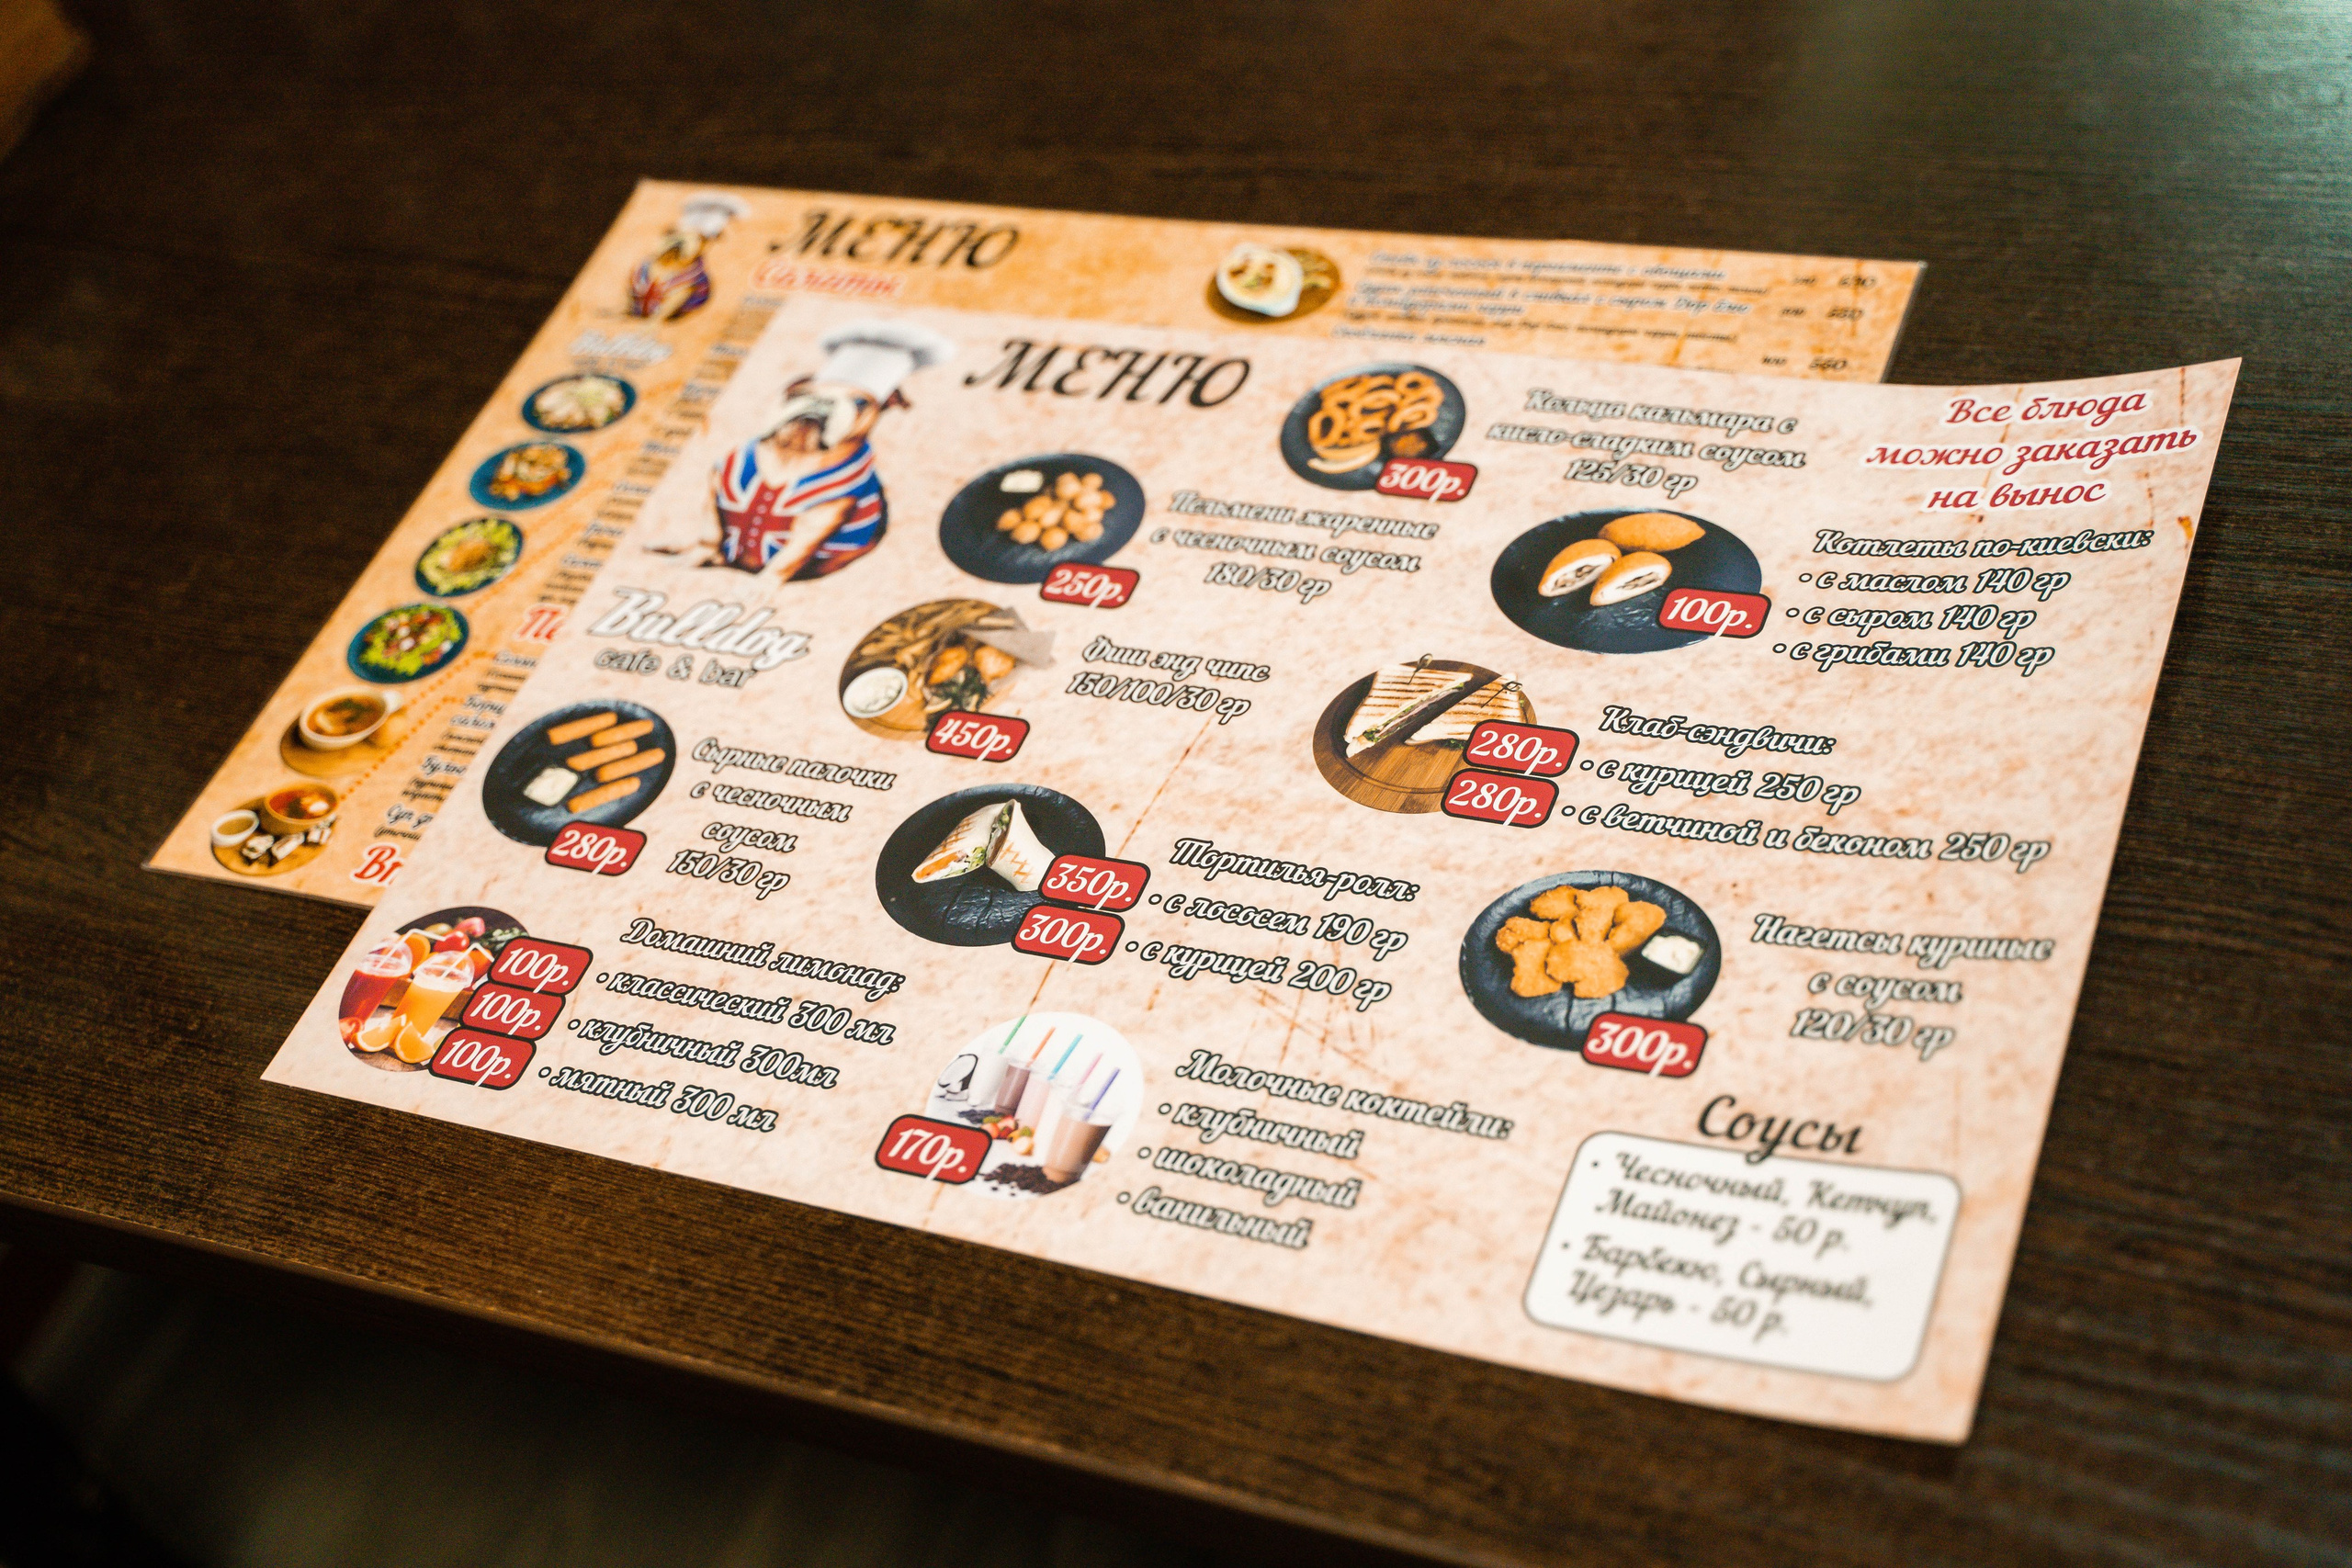 МЕНЮ
Салаты
630
550
560
МЕНЮ
Bulldog
cafe & bar
Все блюда
можно заказать
на вынос
Кольца кальмара с
кисло-сладким соусом
125/30 гр
300р.
Пельмени жаренные
с чесночным соусом
180/30 гр
250р.
Котлеты по-киевски:
• с маслом 140 гр
• с сыром 140 гр
• с грибами 140 гр
100р.
Фиш энд чипс
150/100/30 гр
450р.
Клаб-сэндвичи:
280р. • с курицей 250 гр
280р. • с ветчиной и беконом 250 гр
Сырные палочки
с чесночным
соусом
150/30 гр
280р.
Тортилья-ролл:
350р. • с лососем 190 гр
300р. • с курицей 200 гр
Нагетсы куриные
с соусом
120/30 гр
300р.
Домашний лимонад:
100р. • классический 300 мл
100р. • клубничный 300мл
100р. • мятный 300 мл
Молочные коктейли:
• клубничный
• шоколадный
• ванильный
170р.
Соусы
• Чесночный, Кетчуп,
Майонез - 50 р.
• Барбекю, Сырный,
Цезарь - 50 р.